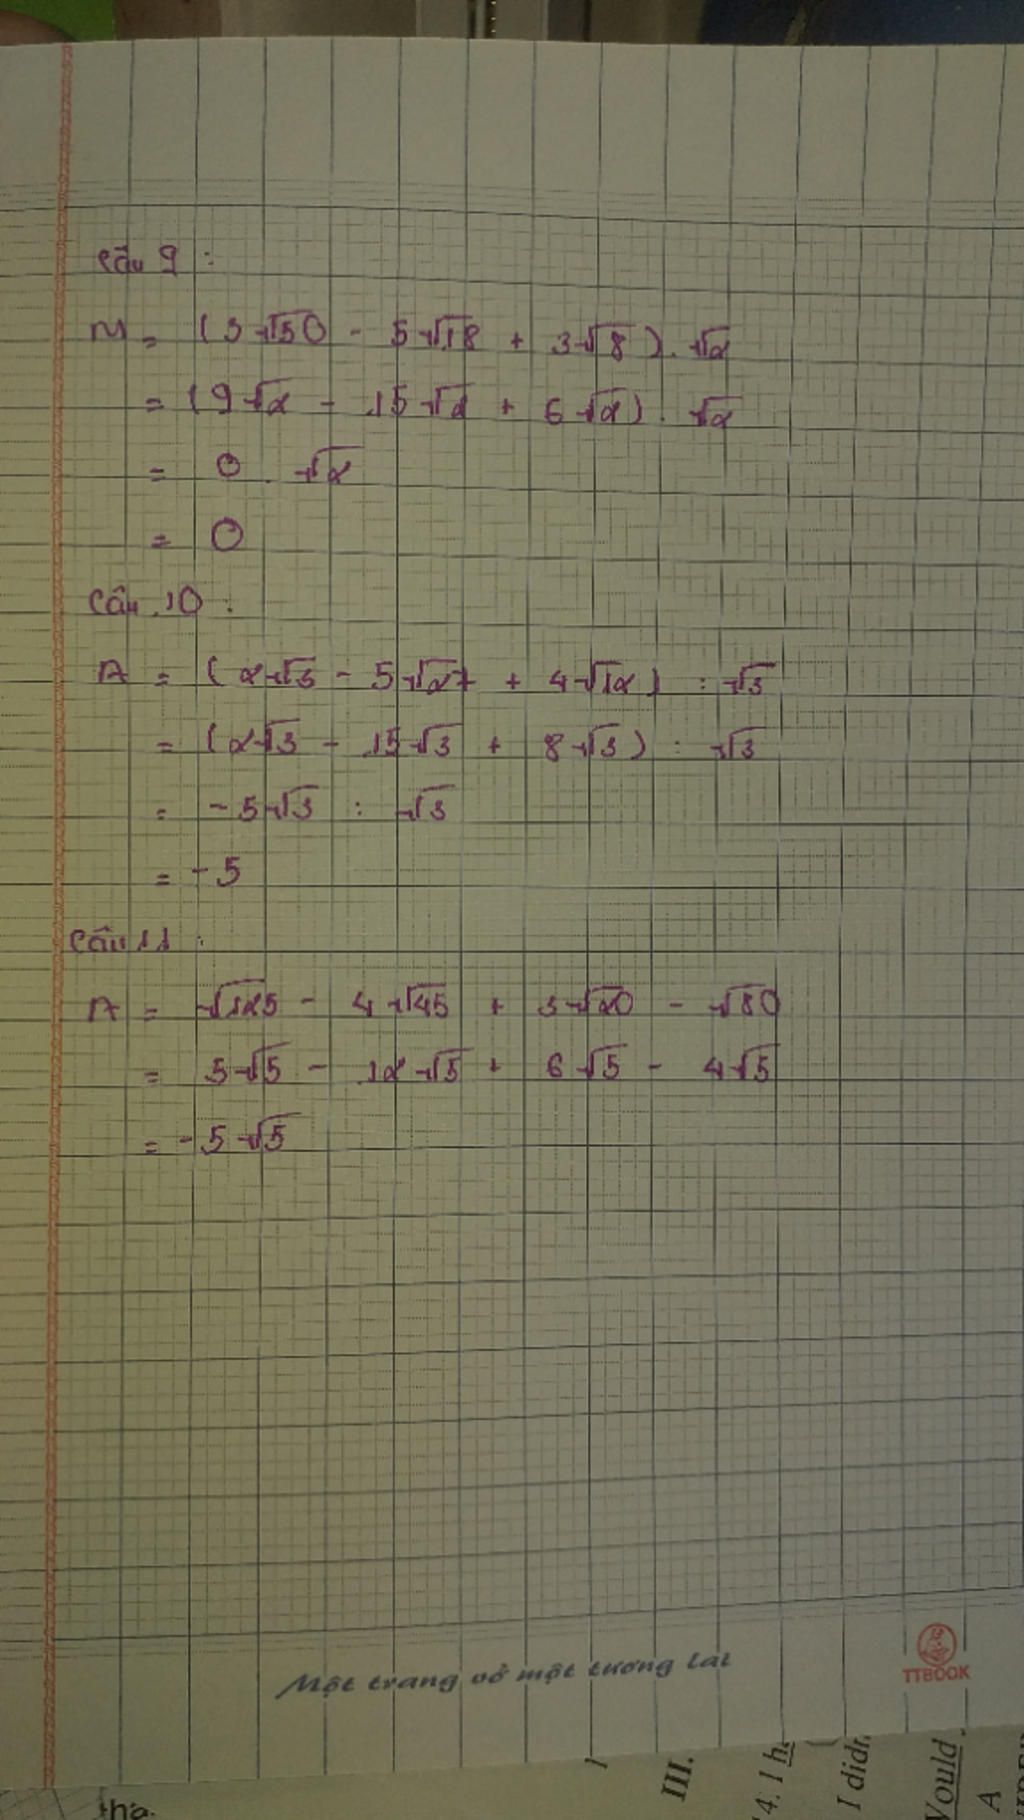 Câu 9 :
M = (3√50 - 5√18 + 3√8) . √2
= (9√2 - 15√2 + 6√2) . √2
= 0 . √2
= 0
Câu 10 :
A = (2√3 - 5√27 + 4√12) : √3
= (2√3 - 15√3 + 8√3) : √3
= -5√3 : √3
= -5
Câu 11 :
A = √125 - 4√45 + 3√20 - √80
= 5√5 - 12√5 + 6√5 - 4√5
= -5√5
Một trang vở một tương lai
TTBOOK
III.
4. I h
I didn
Would
A